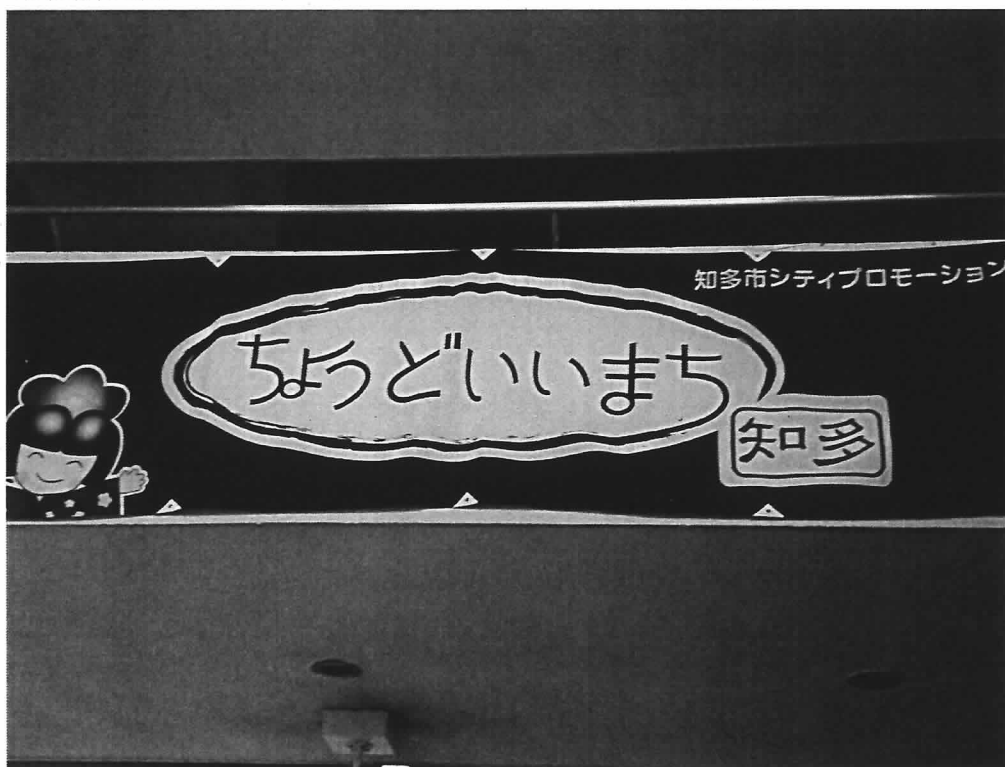 知多市シティプロモーション
ちょうどいいまち
知多